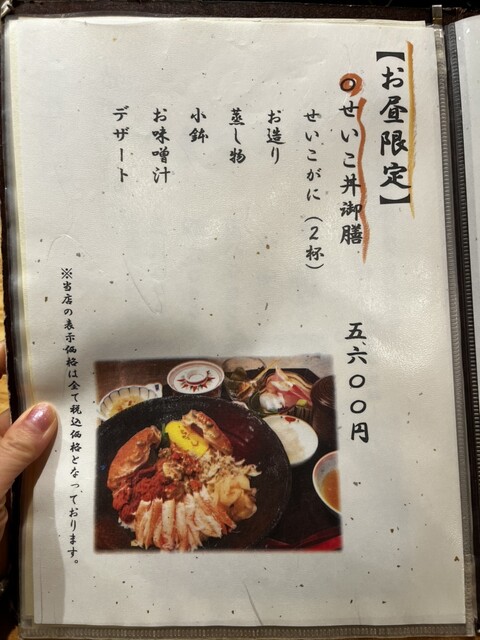 【お昼限定】
せいこ丼御膳
五、六〇〇円
せいこがに（2杯）
お造り
蒸し物
小鉢
お味噌汁
デザート
※当店の表示価格は全て税込価格となっております。